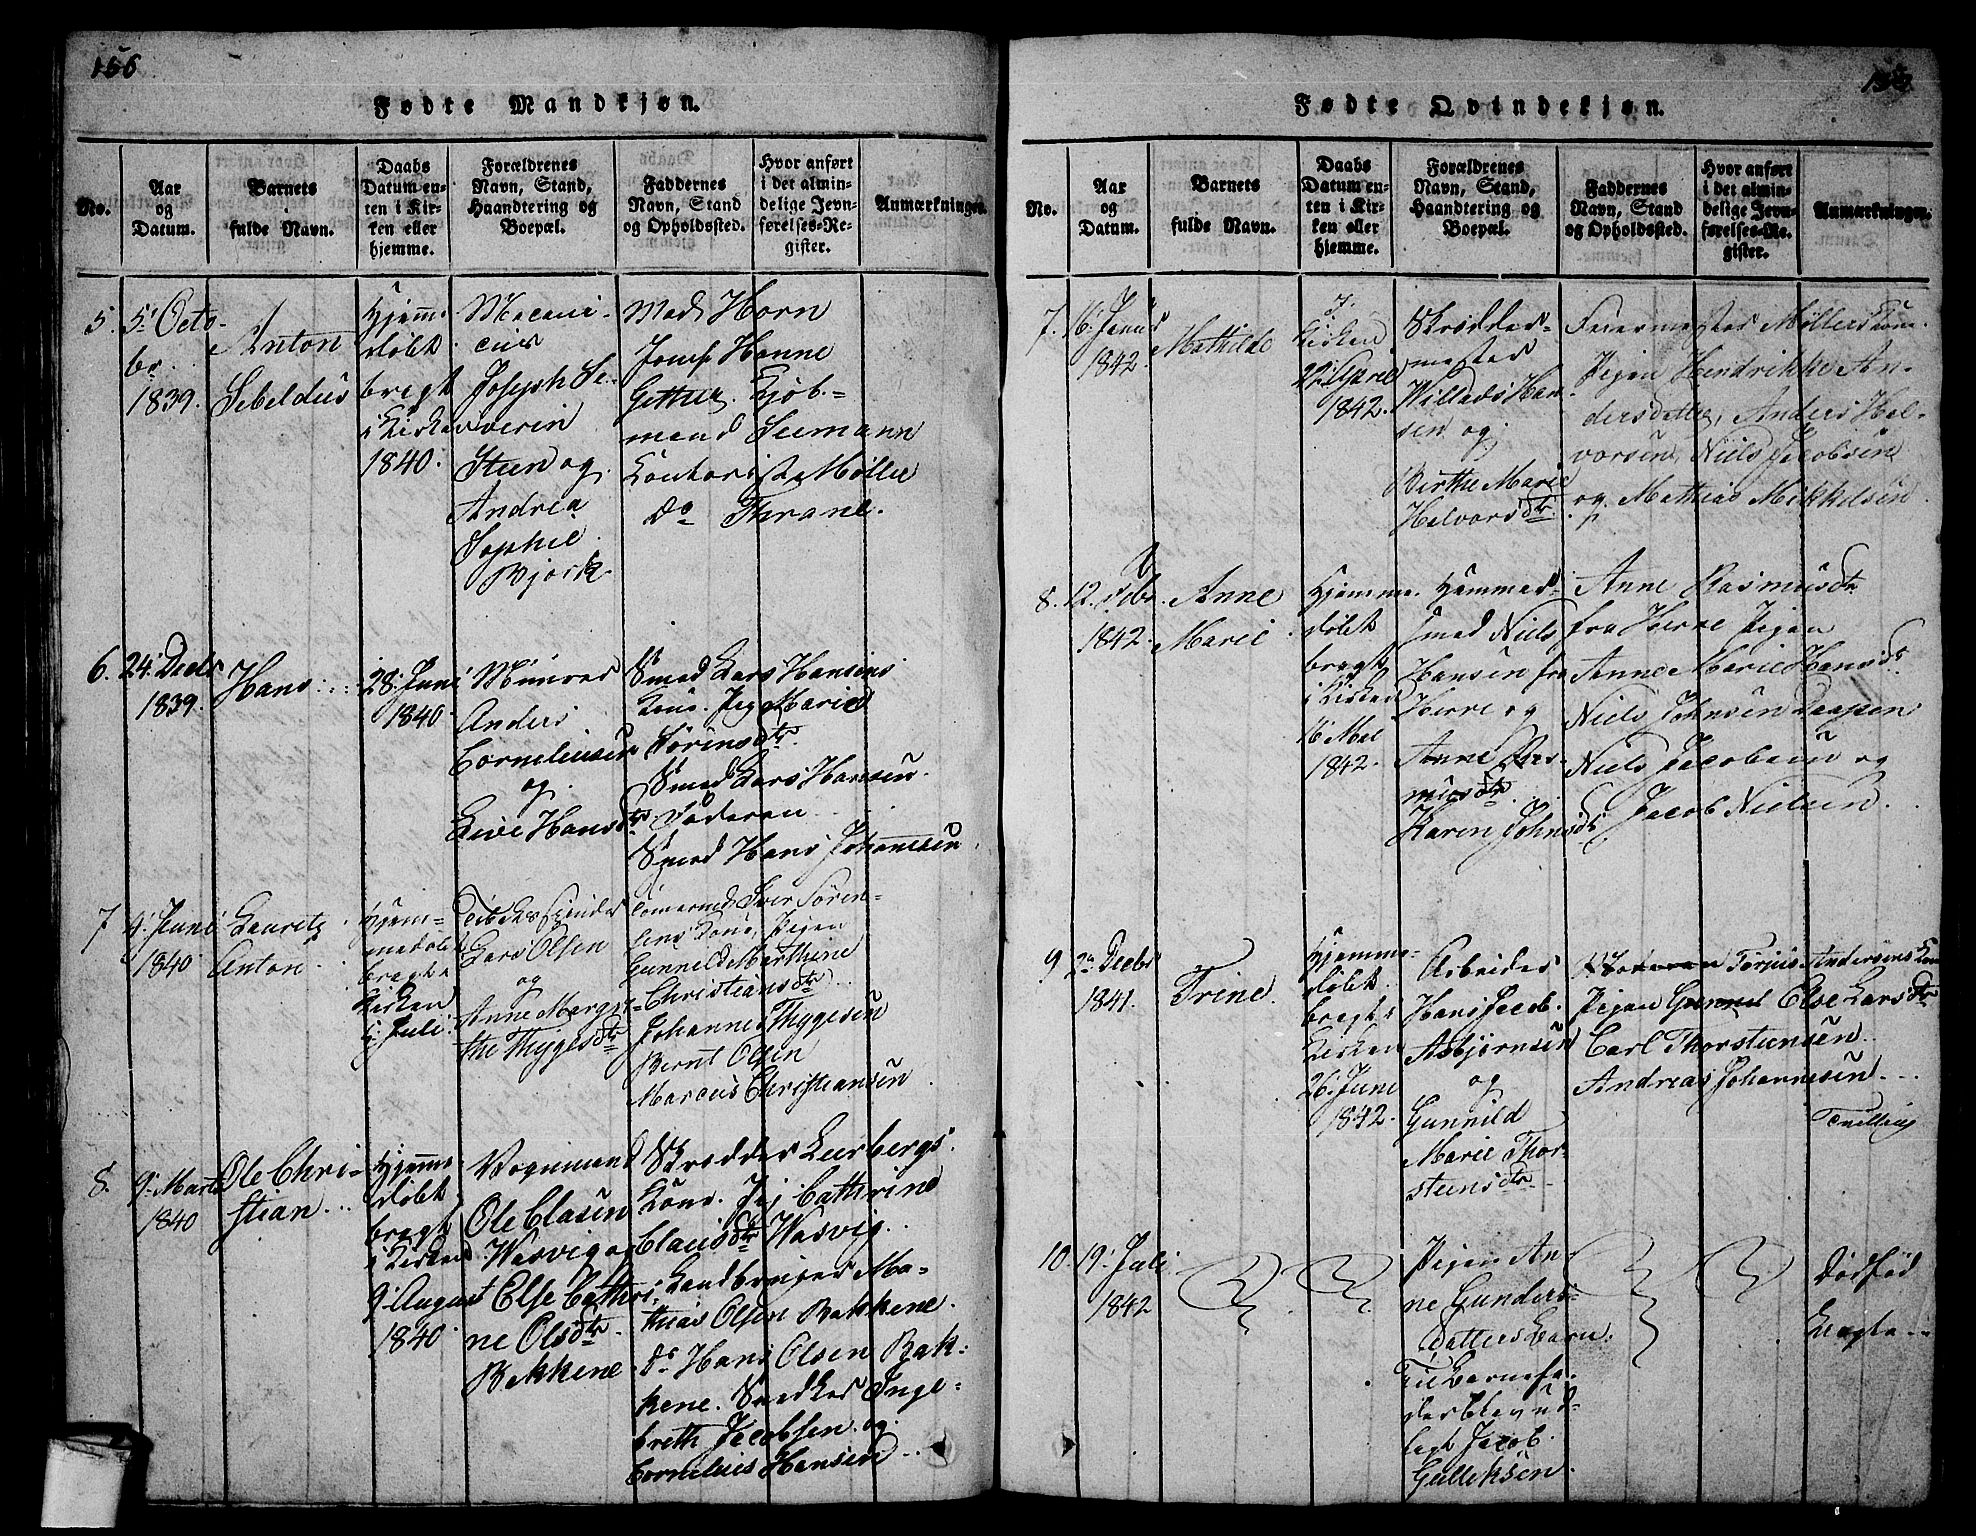 156
Fødte Mandkjøn.
No.
Aar
og
Datum.
Barnets
fulde Navn.
Daabs
Datum en-
ten i Kir-
ken eller
hjemme.
Forældrenes
Navn, Stand,
Haandtering og
Boepæl.
Faddernes
Navn, Stand
og Opholdssted.
Hvor anført
i det almin-
delige Jevn-
førelses-Re-
gister.
Anmærkninger.
5.
5' Octo-
br
1839.
Anton
Sebeldus
Hjemme
døbt
bragt
i Kirken
1840.
Josephse
verin
Steen og
Andrea
Sophie
Bjørk
Mad Horn
Jomf Hanne
Kjøb-
mand Seemann
Contorist Møller
do Thrane.
6.
24' Decbr
1839.
Hans
28' Juni
1840.
Anders
Corneliusen
og
Live Hansdtr
Smed Lars Hansens
Kone. Pige Marie
Sørensdtr.
Smed Lars Hansen.
Faderen
Smed Hans Johannesen
7
4' Juni
1840
Lauritz
Anton
Hjem-
medøbt
bragt i
Kirken
Juli
Lars Olsen
og
Anne Margre-
the Thygesdtr
Tømermd Iver Søren-
sens Kone, Pigen
Gunnild Marthine
Christiansdtr
Johannes Thygesen
Bernt Olsen
Marcus Christiansen
8.
9' Marts
1840
Ole Chri-
stian
Hjemme
døbt
bragt
i Kirken
9' August
1840
Vognmand
Ole Clasen
Wasvig og
Else Cathri
ne Olsdtr.
Bakkene
Skrædder Lurbergs
Kone. Pig Cathrine
Clausdtr Wasvig.
Landbruger Ma-
thias Olsen Bakkene.
do Hans Olsen Bak-
kene. Snedker Inge-
breth Jacobsen og
Cornelius Hansen
Fødte Qvindekjøn.
No.
Aar
og
Datum.
Barnets
fulde Navn.
Daabs
Datum en-
ten i Kir-
ken eller
hjemme.
Forældrenes
Navn, Stand,
Haandtering og
Boepæl.
Faddernes
Navn, Stand
og Opholdssted.
Hvor anført
i det almin-
delige Jevn-
førelses-Re-
gister.
Anmærkninger.
7.
1842.
Mathilde
Kirken
22' April
1842.
Skrædder-
mester
Willads Han-
sen og
Birthe Marie
Helvorsdtr.
Feiermester Møllers Kone.
Pigen Hendrikke An-
dersdatter, Anders Hel-
vorsen, Niels Jacobsen
og Mathias Mikkelsen
8.
12. Febr.
1842.
Anne
Marie
Hjemme
døbt
bragt
i Kirken
16 Mai
1842.
Hammer-
smed Niels
Hansen fra
Herre og
Anne Ras-
musdtr.
Karen Johnsd
Anne Rasmusdtr
fra Herre Pigen
Anne Marie Hansd
Niels Johnsen
Niels Jacobsen og
Jacob Nielsen.
9
Decbr
1841.
Trine.
Hjemme
døbt
bragt i
Kirken
26' June
1842.
Arbeider
Hans Jacob
Asbjørnsen
og
Gunnild
Marie Thor-
steensdtr
Tørjus Andersens Kone
Pigen Gunnil Else Larsdtr
Carl Thorsteensen
Andreas Johannesen
Tvilling
10.
19' Juli
1842
Pigen An-
ne Gunders-
datters Barn.
Til Barnefa-
der blev ud-
lagt Jacob
Gulleksen.
Dødfød
Uægte